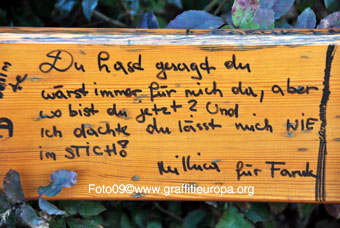 Du hast gesagt du
wärst immer für mich da, aber
wo bist du jetzt? Und
ich dachte du lässt mich NIE
im STICH!?
für Faruk
Foto09©www.graffitieuropa.org